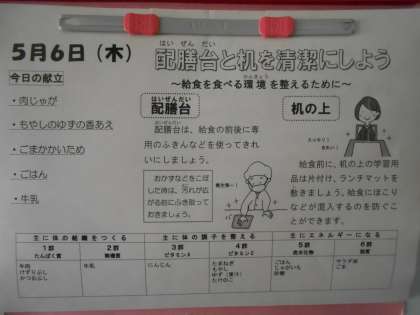 5月6日（木）
配膳台と机を清潔にしよう
はいぜんだい
～給食を食べる環境を整えるために～
かんきょう
今日の献立
・肉じゃが
・もやしのゆずの香あえ
・ごまかかいため
・ごはん
・牛乳
はいぜんだい
配膳台
はいぜんだい
配膳台は、給食の前後に専
用のふきんなどを使ってきれ
いにしましょう。
おかずなどをこぼ
した時は、汚れが広
がる前にふき取って
おきましょう。
机の上
給食前に、机の上の学習用
品は片付け、ランチマットを
敷きましょう。給食にほこり
などが混入するのを防ぐこ
とができます。
主に体の組織をつくる
主に体の調子を整える
主にエネルギーになる
1群
たんぱく質
2群
無機質
3群
ビタミンA
4群
ビタミンC
5群
炭水化物
6群
脂質
牛肉
けずりぶし
かつおぶし
牛乳
にんじん
たまねぎ
もやし
ゆず（果汁）
たけのこ
ごはん
じゃがいも
砂糖
サラダ油
ごま